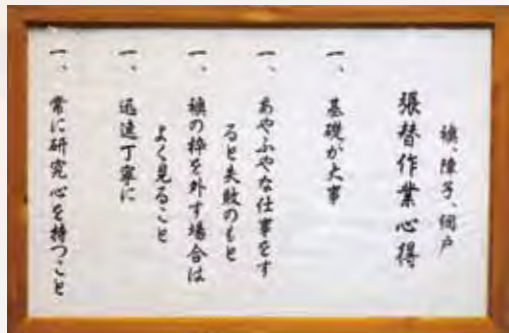 襖、障子、網戸
張替作業心得
一、基礎が大事
一、あやふやな仕事をす
ると失敗のもと
一、襖の枠を外す場合は
よく見ること
一、迅速丁寧に
一、常に研究心を持つこと